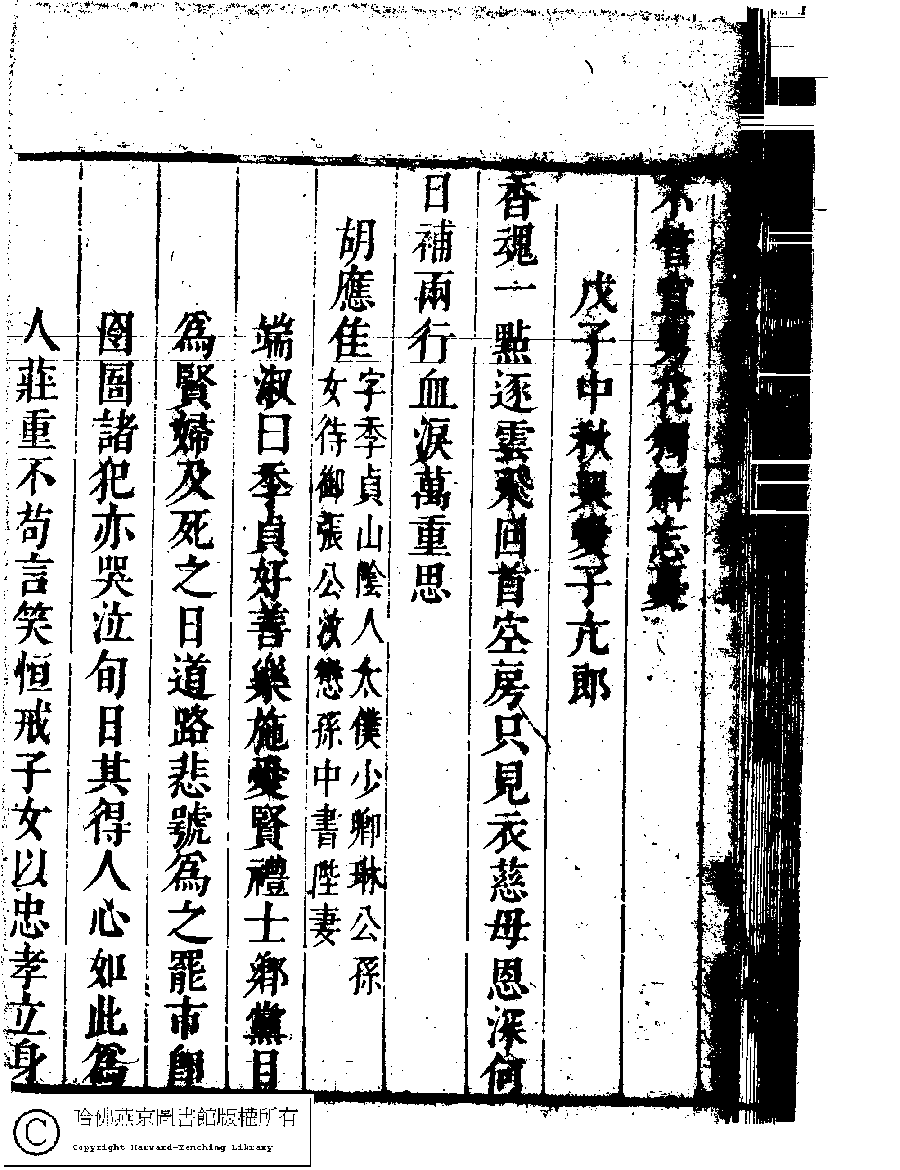 不曾宜男花獨解忘憂
戊子中秋哭雙子亢郎
香魂一點逐雲飛回首空房只見衣慈母恩深何
日補兩行血淚萬重思
胡應佳字季貞山陰人太僕少卿琳公孫
女侍御張公汝懋孫中書陛妻
端淑曰季貞好善樂施愛賢禮士鄉黨目
為賢婦及死之日道路悲號為之罷市卽
囹圄諸犯亦哭泣旬日其得人心如此為
人莊重不苟言笑恒戒子女以忠孝立身
哈佛燕京圖書館版權所有
Copyright Harvard-Yenching Library